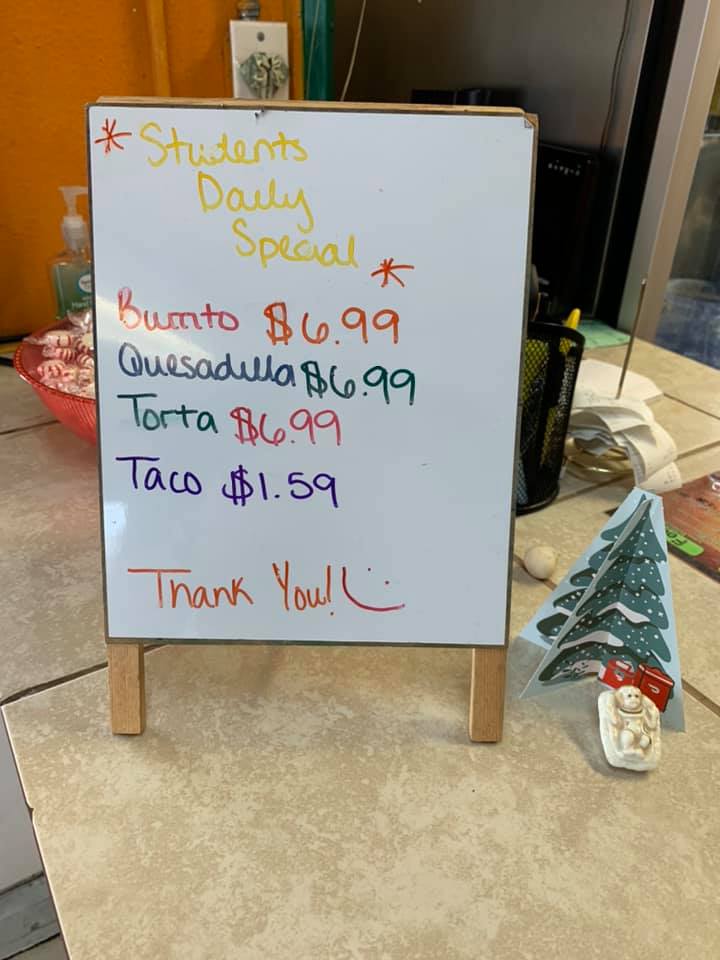 * Students
Daily
Special *
Burrito $6.99
Quesadilla $6.99
Torta $6.99
Taco $1.59
Thank You!